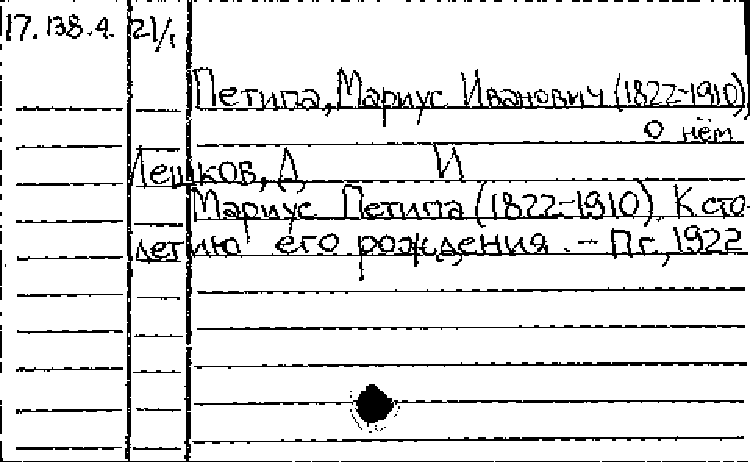 17.138.4. 21/1
Петипа, Мариус Иванович (1822-1910)
о нём
Лешков, Д И
Мариус Петипа (1822-1910). К сто-
летию его рождения. - Пг., 1922